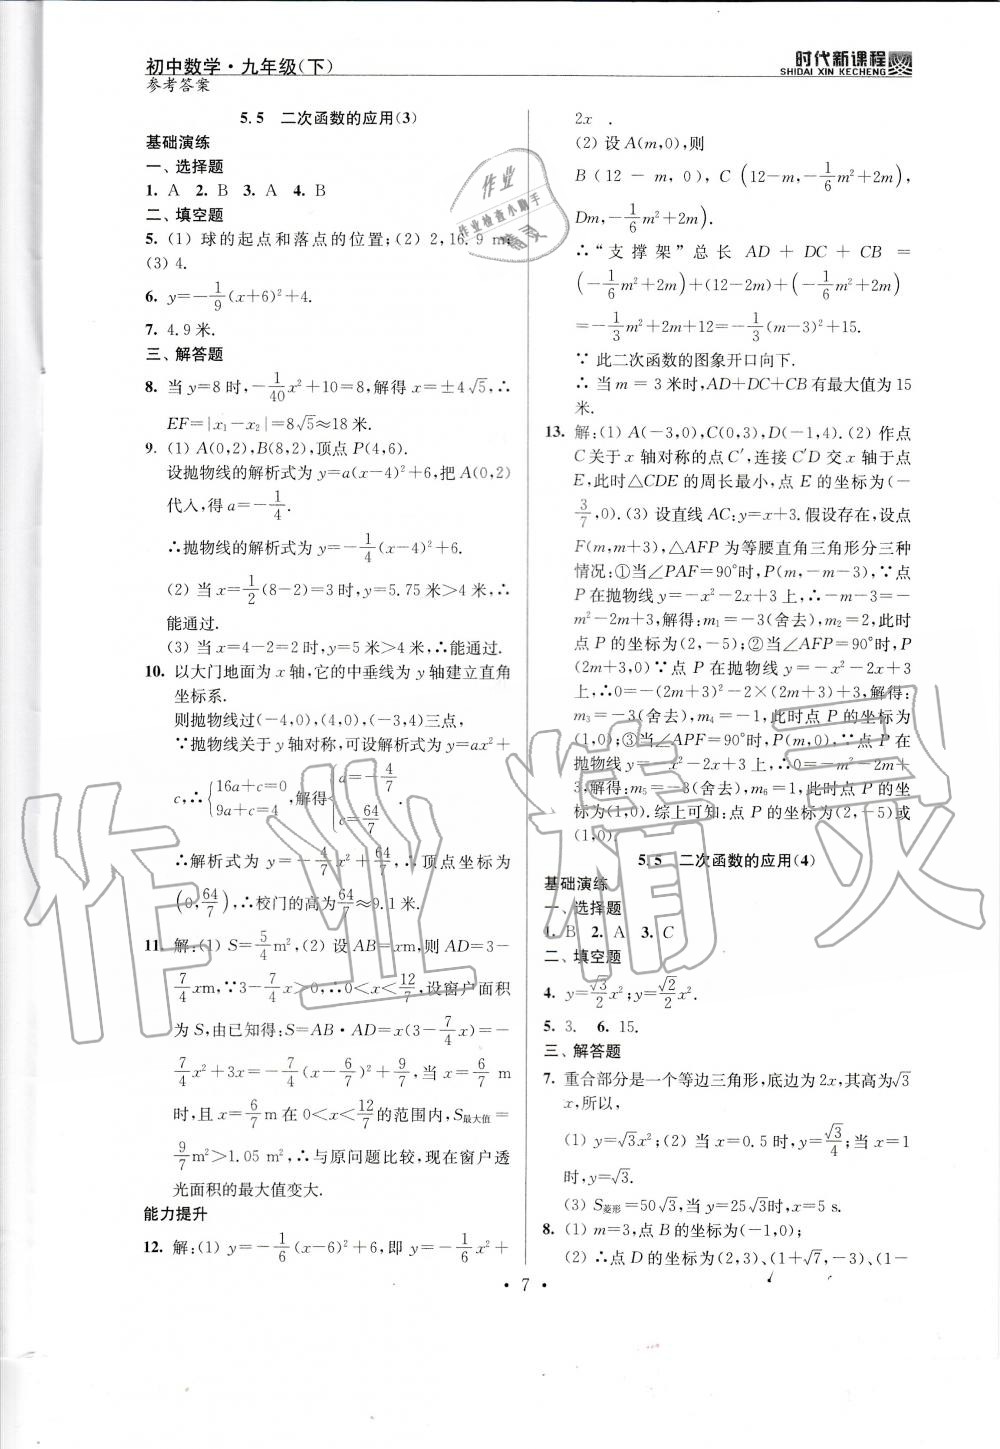 初中数学·九年级(下)
参考答案
时代新课程
SHIDAI XIN KECHENG
5.5 二次函数的应用(3)
基础演练
一、选择题
1. A 2. B 3. A 4. B
二、填空题
5. (1) 球的起点和落点的位置;(2) 2,16.9 m;
(3) 4.
6. y=-1/9(x+6)²+4.
7. 4.9 米.
三、解答题
8. 当 y=8 时,-1/40x²+10=8,解得 x=±4√5,∴
EF=|x₁-x₂|=8√5≈18 米.
9. (1) A(0,2),B(8,2),顶点 P(4,6).
设抛物线的解析式为 y=a(x-4)²+6,把 A(0,2)
代入,得 a=-1/4.
∴抛物线的解析式为 y=-1/4(x-4)²+6.
(2) 当 x=1/2(8-2)=3 时,y=5.75 米>4 米,∴
能通过.
(3) 当 x=4-2=2 时,y=5 米>4 米,∴能通过.
10. 以大门地面为 x 轴,它的中垂线为 y 轴建立直角
坐标系.
则抛物线过(-4,0),(4,0),(-3,4)三点,
∵抛物线关于 y 轴对称,可设解析式为 y=ax²+
c,∴{16a+c=0 9a+c=4,解得{a=-4/7 c=64/7.
∴解析式为 y=-4/7x²+64/7,∴顶点坐标为
(0,64/7),∴校门的高为64/7≈9.1 米.
11. 解:(1) S=5/4m²,(2) 设 AB=xm,则 AD=3-
7/4xm,∵3-7/4x>0,∴0<x<12/7,设窗户面积
为 S,由已知得:S=AB·AD=x(3-7/4x)=-
7/4x²+3x=-7/4(x-6/7)²+9/7,当 x=6/7 m
时,且 x=6/7m 在 0<x<12/7的范围内,S最大值=
9/7m²>1.05 m²,∴与原问题比较,现在窗户透
光面积的最大值变大.
能力提升
12. 解:(1) y=-1/6(x-6)²+6,即 y=-1/6x²+
2x.
(2) 设 A(m,0),则
B(12-m,0),C(12-m,-1/6m²+2m),
Dm,-1/6m²+2m).
∴“支撑架”总长 AD+DC+CB=
(-1/6m²+2m)+(12-2m)+(-1/6m²+2m)
=-1/3m²+2m+12=-1/3(m-3)²+15.
∵ 此二次函数的图象开口向下.
∴ 当 m=3 米时,AD+DC+CB 有最大值为 15
米.
13. 解:(1) A(-3,0),C(0,3),D(-1,4).(2) 作点
C 关于 x 轴对称的点 C′,连接 C′D 交 x 轴于点
E,此时△CDE 的周长最小,点 E 的坐标为(-
3/7,0).(3) 设直线 AC:y=x+3.假设存在,设点
F(m,m+3),△AFP 为等腰直角三角形分三种
情况:①当∠PAF=90°时,P(m,-m-3),∵点
P 在抛物线 y=-x²-2x+3 上,∴-m-3=-
m²-2m+3,解得:m₁=-3(舍去),m₂=2,此时
点 P 的坐标为(2,-5);②当∠AFP=90°时,P
(2m+3,0)∵点 P 在抛物线 y=-x²-2x+3
上,∴0=-(2m+3)²-2×(2m+3)+3,解得:
m₃=-3(舍去),m₄=-1,此时点 P 的坐标为
(1,0);③当∠APF=90°时,P(m,0),∵点 P 在
抛物线 y=-x²-2x+3 上,∴0=-m²-2m+
3,解得:m₅=-3(舍去),m₆=1,此时点 P 的坐
标为(1,0).综上可知:点 P 的坐标为(2,-5)或
(1,0).
5.5 二次函数的应用(4)
基础演练
一、选择题
1. B 2. A 3. C
二、填空题
4. y=√3/2x²;y=√2/2x².
5. 3. 6. 15.
三、解答题
7. 重合部分是一个等边三角形,底边为 2x,其高为√3
x,所以,
(1) y=√3x²;(2) 当 x=0.5 时,y=√3/4;当 x=1
时,y=√3.
(3) S菱形=50√3,当 y=25√3时,x=5 s.
8. (1) m=3,点 B 的坐标为(-1,0);
(2) ∴点 D 的坐标为(2,3)、(1+√7,-3)、(1-
· 7 ·
作业
作业检查小助手
精灵
作业精灵